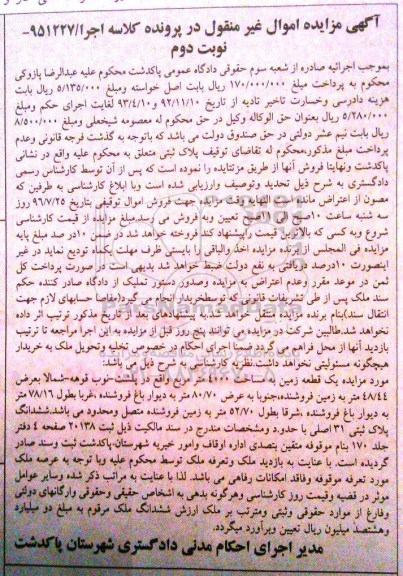 آگهی مزایده اموال غیر منقول در پرونده کلاسه اجرا/۹۵۱۲۲۷-
نوبت دوم
بموجب اجرائیه صادره از شعبه سوم حقوقی دادگاه عمومی پاکدشت محکوم علیه عبدالرضا پازوکی
محکوم به پرداخت مبلغ ۱۷۰/۰۰۰/۰۰۰ ریال بابت اصل خواسته ومبلغ ۵/۱۳۵/۰۰۰ ریال بابت
هزینه دادرسی وخسارت تاخیر تادیه از تاریخ ۹۲/۱۱/۱۰ و ۹۳/۴/۱۰ لغایت اجرای حکم ومبلغ
۵/۲۸۰/۰۰۰ ریال بعنوان حق الوکاله وکیل در حق محکوم له معصومه شیخعلی ومبلغ ۸/۵۰۰/۰۰۰
ریال بابت نیم عشر دولتی در حق صندوق دولت می باشد که باتوجه به گذشت فرجه قانونی وعدم
پرداخت مبلغ مذکور،محکوم له تقاضای توقیف پلاک ثبتی متعلق به محکوم علیه واقع در نشانی
پاکدشت ونهایتا فروش آنها از طریق مزایده را نموده است که پس از آن توسط کارشناس رسمی
دادگستری به شرح ذیل تحدید وتوصیف وارزیابی شده است وبا ابلاغ کارشناسی به طرفین که
مصون از اعتراض مانده است النهایه وقت مزایده جهت فروش اموال توقیفی بتاریخ ۹۶/۷/۲۵ روز
سه شنبه ساعت ۱۰صبح الی ۱۱صبح تعیین وبه فروش می رسد.مبلغ مزایده از قیمت کارشناسی
شروع وبه کسی که بالاترین قیمت راپیشنهاد کند فروخته خواهد شد در ضمن ۱۰درصد مبلغ پایه
مزایده فی المجلس از برنده مزایده اخذ والباقی را بایستی ظرف مهلت یکماه تودیع نماید در غیر
اینصورت ۱۰درصد دریافتی به نفع دولت ضبط خواهد شد بدیهی است در صورت پرداخت کل
ثمن در موعد مقرر وعدم اعتراض به مزایده وصدور دستور تملیک از دادگاه صادر کننده حکم
سند ملک پس از طی تشریفات قانونی که توسط خریدار انجام می گیرد(مفاصا حسابهای لازم جهت
انتقال سند)بنام برنده مزایده منتقل خواهد شد.به پیشنهادهای بعد از تاریخ مذکور ترتیب اثر داده
نخواهد شد.طالبین شرکت در مزایده می توانند پنج روز قبل از مزایده به این اجرا مراجعه تا ترتیب
بازدید آنها از محل فراهم می گردد ضمنا اجرای احکام در خصوص تخلیه وتحویل ملک به خریدار
هیچگونه مسئولیتی نخواهد داشت.نظریه کارشناسی به شرح ذیل می باشد:
مورد مزایده یک قطعه زمین به مساحت ۴۰۰۰ متر مربع واقع در پلشت-نوب قوهه-شمالا بعرض
۴۸/۴۴ متر به زمین فروشنده،جنوبا به عرض ۸۰/۷۰ متر به دیوار باغ فروشنده ،غربا بطول ۷۸/۱۶ متر
به دیوار باغ فروشنده ،شرقا بطول ۵۲/۷۰ متر به زمین فروشنده متصل ومحدود می باشد.ششدانگ
پلاک ثبتی ۳۱ اصلی با حدود ومشخصات مندرج در سند مالکیت ذیل ثبت ۲۰۱۳۸ صفحه ۴ دفتر
جلد ۱۷۰ بنام موقوفه متقین بتصدی اداره اوقاف وامور خیریه شهرستان-پاکدشت ثبت وسند صادر
گردیده است. با عنایت به بازدید ملک وتعرفه ملک توسط محکوم علیه وبا توجه به عرصه ملک
مورد تعرفه موقوفه وفاقد امکانات رفاهی می باشد. لذا با عنایت به مراتب ذکر شده وسایر عوامل
موثر در قضیه وقیمت روز کارشناسی وهرگونه بدهی به اشخاص حقیقی وحقوقی وارگانهای دولتی
وفارغ از موارد حقوقی وثبتی ومترتب بر ملک ارزش ششدانگ ملک مرقوم به مبلغ دو میلیارد
وهشتصد میلیون ریال تعیین وبرآورد میگردد.
مدیر اجرای احکام مدنی دادگستری شهرستان پاکدشت